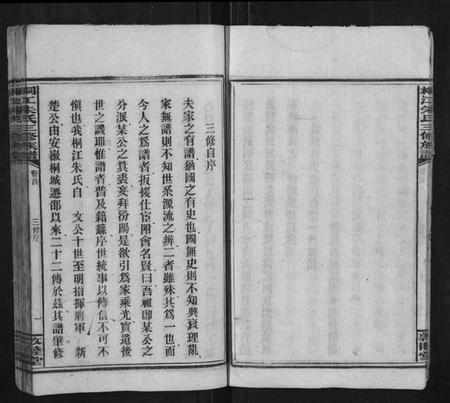 三修自序
夫家之有譜猶國之有史也國無史則不知興衰理亂
家無譜則不知世系源流之辨二者雖殊其爲一也而
今人之爲譜者扳援仕宦附會名賢曰吾祖卽某公之
分派某公之眞裔妄拜汾陽是欲引爲家乘光實遺後
世之譏耶惟譜者普及籍錄序世統事以傳信不可不
愼也我桐江朱氏自 文公十世至明指揮將軍 新
楚公由安徽桐城遷邵以來二十二傳於茲其譜肇修
桐江朱氏三修族譜
卷首
三修序
一
敦睦堂
桐江朱氏三修族譜
敦睦堂